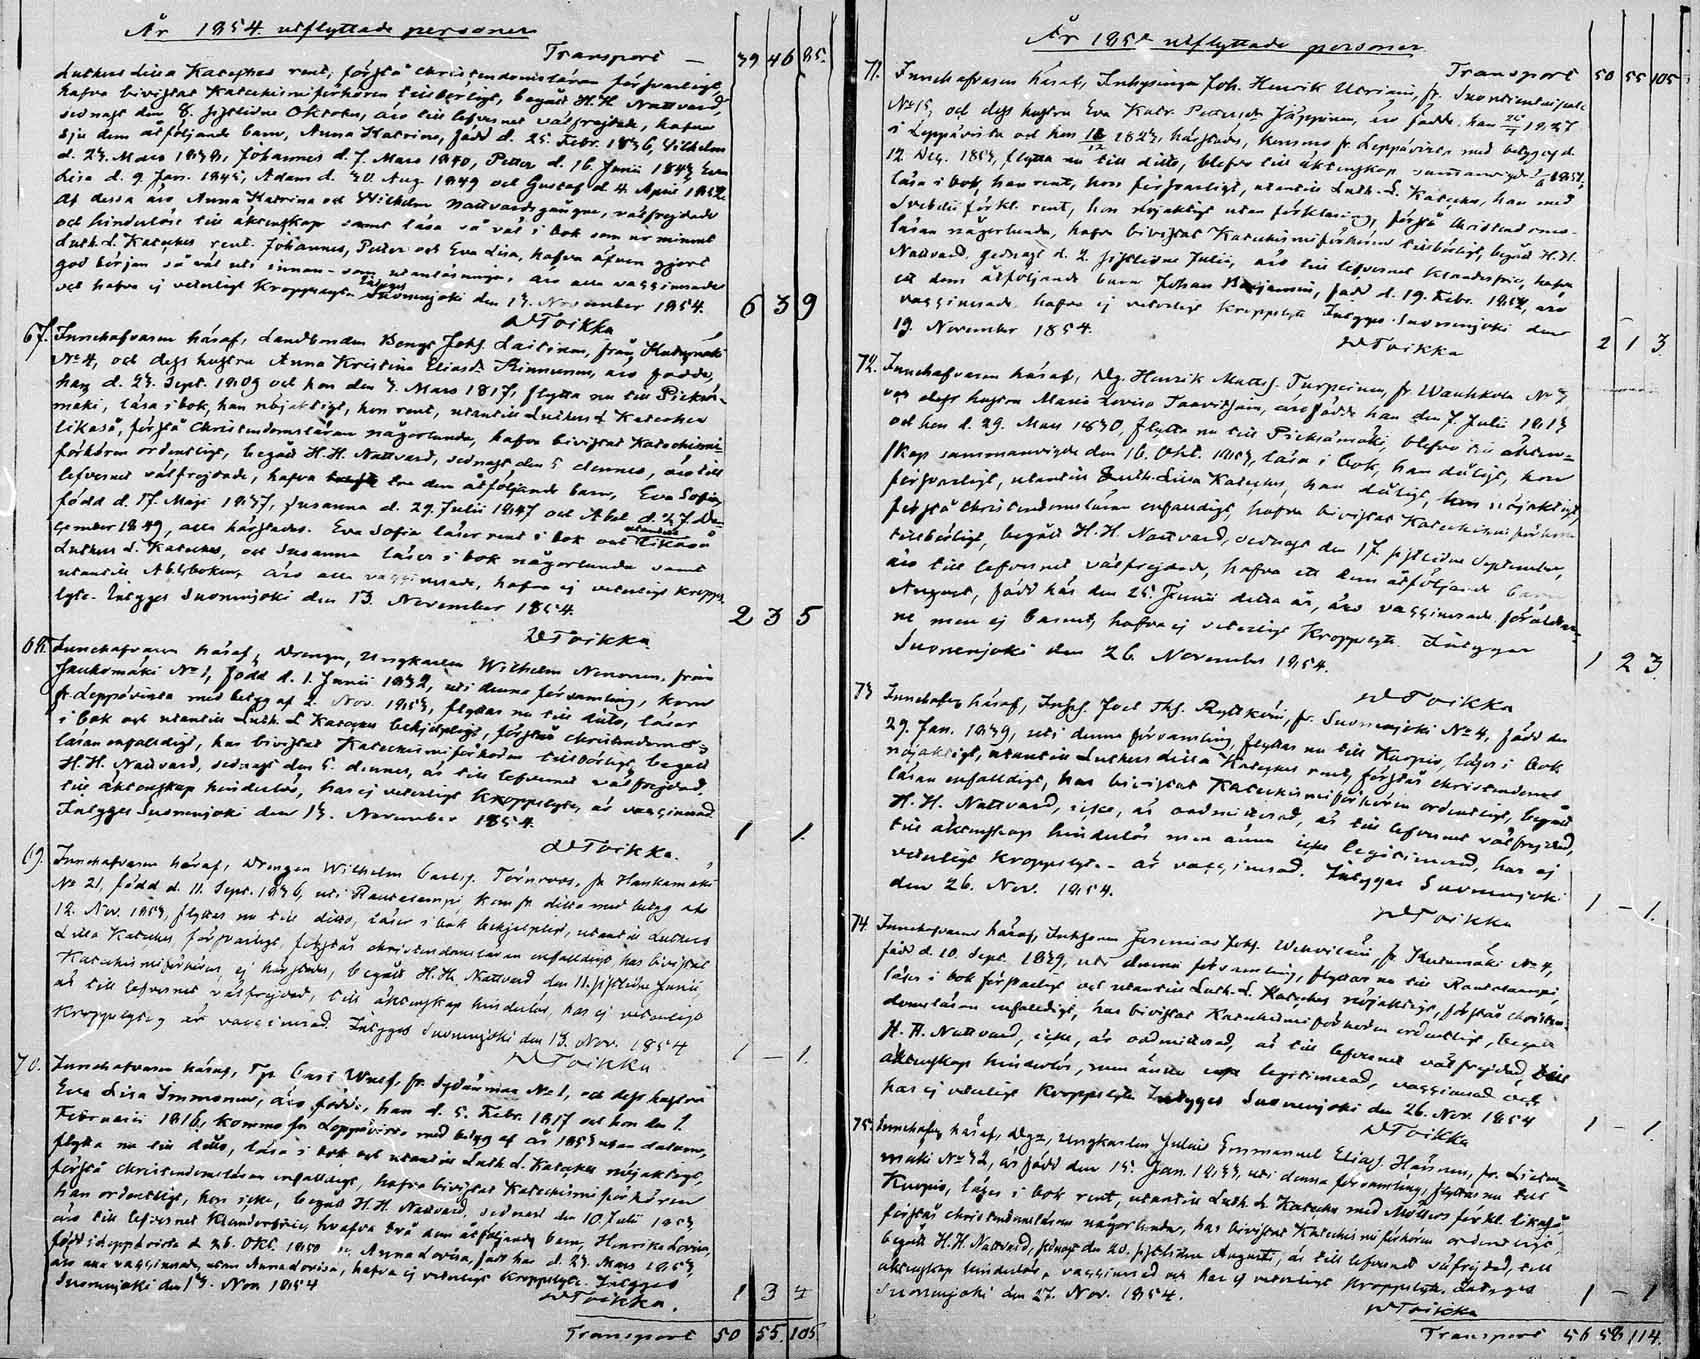 År 1854 utflyttade personer
Transport — 39 46 85.
Luthers Lilla Kateches rent, förstå christendomsläran försvarligt,
hafva bivistat Katechismiförhören tillbörligt, begått H.H. Nattvard,
sednast den 8. sistlidne Oktober, äro till lefvernet välfrejdade, hafva
sju dem åtföljande barn, Anna Katrina, född d. 25. Febr. 1836, Wilhelm
d. 23. Mars 1838, Johannes d. 7. Mars 1840, Petter d. 16 Junii 1843, Eva
Lisa d. 9. Jan. 1845, Adam d. 30. Aug. 1849 och Gustaf d. 4. April 1852.
Af dessa äro Anna Katrina och Wilhelm nattvardsgångne, välfrejdade
och hinderlöse till äktenskap samt läsa så väl i bok som ur minnet
Luth. L. Kateches rent. Johannes, Petter och Eva Lisa, hafva äfven gjort
god början så väl uti innan- som utanläsning, äro alla vaccinerade
och hafva ej veterligt Kroppslyte. Intygas Suonenjoki den 13. November 1854. 6 3 9
Toikka
67. Innehafvaren häraf, Landbonden Bengt Joh. Laitinen, från Kutumäki
No 4, och dess hustru Anna Kristina Eliasd. Rinnunen, äro födde,
han d. 23. Sept. 1809 och hon den 3. Mars 1817, flytta nu till Pieksä-
mäki, läsa i bok, han nöjaktigt, hon rent, utantill Luthers L. Kateches
likaså, förstå Christendomsläran någorlunda, hafva bivistat Katechismi-
förhören ordentligt, begått H.H. Nattvard, sednast den 5 dennes, äro till
lefvernet välfrejdade, hafva tre dem åtföljande barn, Eva Sofia,
född d. 17. Maji 1837, Susanna d. 29. Julii 1847 och Abel d. 27. De-
cember 1849, alla härstädes. Eva Sofia läser rent i bok och utantill likaså
Luthers L. Kateches, och Susanna läser i bok någorlunda samt
utantill Abcboken, äro alla vaccinerade, hafva ej veterligt Kropps-
lyte. Intygas Suonenjoki den 13. November 1854. 2 3 5
Toikka
68. Innehafvaren häraf, Drengen, Ungkarlen Wilhelm Nenonen, från
Jauhomäki No 1, född d. 1. Junii 1832, uti denna församling, kom
fr. Leppävirta med betyg af 2. Nov. 1853, flyttar nu till dito, läser
i bok och utantill Luth. L. Kateches behjelpligt, förstår christendoms-
läran enfaldigt, har bivistat Katechismiförhören tillbörligt, begått
H.H. Nattvard, sednast den 5. dennes, är till lefvernet välfrejdad,
till äktenskap hinderlös, har ej veterligt Kroppslyte, är vaccinerad.
Intygas Suonenjoki den 13. November 1854. 1 1.
Toikka.
69. Innehafvaren häraf, Drengen Wilhelm Carls. Törnroos, fr. Hankamäki
No 21, född d. 11. Sept. 1836, uti Rautalampi, kom fr. ditto med betyg af
12. Nov. 1853, flyttar nu till ditto, läser i bok behjelpligt, utantill Luthers
Lilla Kateches försvarligt, förstår christendomsläran enfaldigt, har bivistat
Katechismiförhören, ej härstädes, begått H.H. Nattvard den 11. sistlidne Junii
är till lefvernet välfrejdad, till äktenskap hinderlös, har ej veterligt
Kroppslyte, är vaccinerad. Intygas Suonenjoki den 13. Nov. 1854 1 — 1.
Toikka.
70. Innehafvaren häraf, Tp. Carl Wulf, fr. Sydänmaa No 1, och dess hustru
Eva Lisa Immonen, äro födde, han d. 5. Febr. 1817 och hon den 2.
Februarii 1816, kommo fr. Leppävirta med betyg af år 1853 utan datum,
flytta nu till ditto, läsa i bok och utantill Luth. L. Kateches nöjaktigt,
förstå christendomsläran enfaldigt, hafva bivistat Katechismiförhören
han ordentligt, hon icke, begått H.H. Nattvard, sednast den 10. Julii 1853
äro till lefvernet klanderfrie, hafva två dem åtföljande barn, Henrika Lovisa,
född i Leppävirta d. 26. Okt. 1850 och Anna Lovisa, född här d. 23. Mars 1853,
äro alla vaccinerade, utom Anna Lovisa, hafva ej veterligt Kroppslyte. Intygas
Suonenjoki den 13. Nov. 1854 1 3 4
Toikka.
Transport 50 55. 105
År 1854 utflyttade personer
Transport 50 55 105
71. Innehafvaren häraf, Inhysinge Joh. Henrik Utriain, fr. Suontientaipale
No 15, och dess hustru Eva Katr. Pettersd. Jäppinen, äro födde, han 1827
i Leppävirta och hon 1823, härstädes, kommo fr. Leppävirta med betyg af d.
12. Dec. 1853, flytta nu till ditto, blefvo till äktenskap sammanvigde 1852,
läsa i bok, han rent, hon försvarligt, utantill Luth. L. Kateches, han med
Svebelii förkl. rent, hon nöjaktigt utan förklaring, förstå Christendoms-
läran någorlunda, hafva bivistat Katechismiförhören tillbörligt, begått H.H.
Nattvard, sednast d. 2. sistlidne Julii, äro till lefvernet klanderfrie, hafva
ett dem åtföljande barn Johan Benjamin, född d. 19. Febr. 1854, äro
vaccinerade, hafva ej veterligt kroppslyte. Intygas. Suonenjoki den
19. November 1854. 2 1 3.
Toikka
72. Innehafvaren häraf, Dg. Henrik Matts. Turpeinen, fr. Wauhkola No 3
och dess hustru Maria Lovisa Taavitsain, äro födde han den 7. Julii 1813
och hon d. 29. Mars 1830, flytta nu till Pieksämäki, blefvo till äkten-
skap sammanvigde den 16. Okt. 1853, läsa i bok, han dåligt, hon
försvarligt, utantill Luth. Lilla Kateches, han dåligt, hon nöjaktigt,
förstå Christendomsläran enfaldigt, hafva bivistat Katechismiförhören
tillbörligt, begått H.H. Nattvard, sednast den 17. sistlidne September,
äro till lefvernet välfrejdade, hafva ett dem åtföljande barn
August, född här den 25. Junii detta år, äro vaccinerade föräldrar-
ne men ej barnet, hafva ej veterligt Kroppslyte. Intygas
Suonenjoki den 26. November 1854. 1 2 3.
Toikka
73. Innehafv. häraf, Joel Ths. Rytkön, fr. Suonenjoki No 4, född den
29. Jan. 1839, uti denna församling, flyttar nu till Kuopio, läser i bok
nöjaktigt, utantill Luthers Lilla Kateches rent, förstår christendoms-
läran enfaldigt, har bivistat Katechismiförhören ordentligt, begått
H.H. Nattvard, icke, är oadmitterad, är till lefvernet välfrejdad,
till äktenskap hinderlös men ännu icke legitimerad, har ej
veterligt Kroppslyte, är vaccinerad. Intygas Suonenjoki
den 26. Nov. 1854. 1 — 1.
Toikka
74. Innehafvaren häraf, Inhysonen Jeremias Johs. Wehviläin, fr. Kutumäki No 4,
född d. 10. Sept. 1839, uti denna församling, flyttar nu till Rautalampi,
läser i bok försvarligt och utantill Luth. L. Kateches nöjaktigt, förstår christen-
domsläran enfaldigt, har bivistat Katechismiförhören ordentligt, begått
H.H. Nattvard, icke, är oadmitterad, är till lefvernet välfrejdad, till
äktenskap hinderlös, men ännu legitimerad, vaccinerad och
har ej veterligt Kroppslyte Intygas Suonenjoki den 26. Nov. 1854 1 — 1.
Toikka
75. Innehafv. häraf, Dgn, Ungkarlen Julius Emmanuel Eliass. Häyrinen, fr. Lieten-
mäki No 32, är född den 15. Jan. 1833, uti denna församling, flyttar nu till
Kuopio, läser i bok rent, utantill Luth. L. Kateches med Möllers förkl. likaså,
förstår christendomsläran någorlunda, har bivistat Katechismiförhören ordentligt,
begått H.H. Nattvard, sednast den 20. sistlidne Augusti, är till lefvernet välfrejdad, till
äktenskap hinderlös, vaccinerad och har ej veterligt Kroppslyte. Intygas
Suonenjoki den 27. Nov. 1854. 1 — 1
Toikka
Transport 56 58 114.